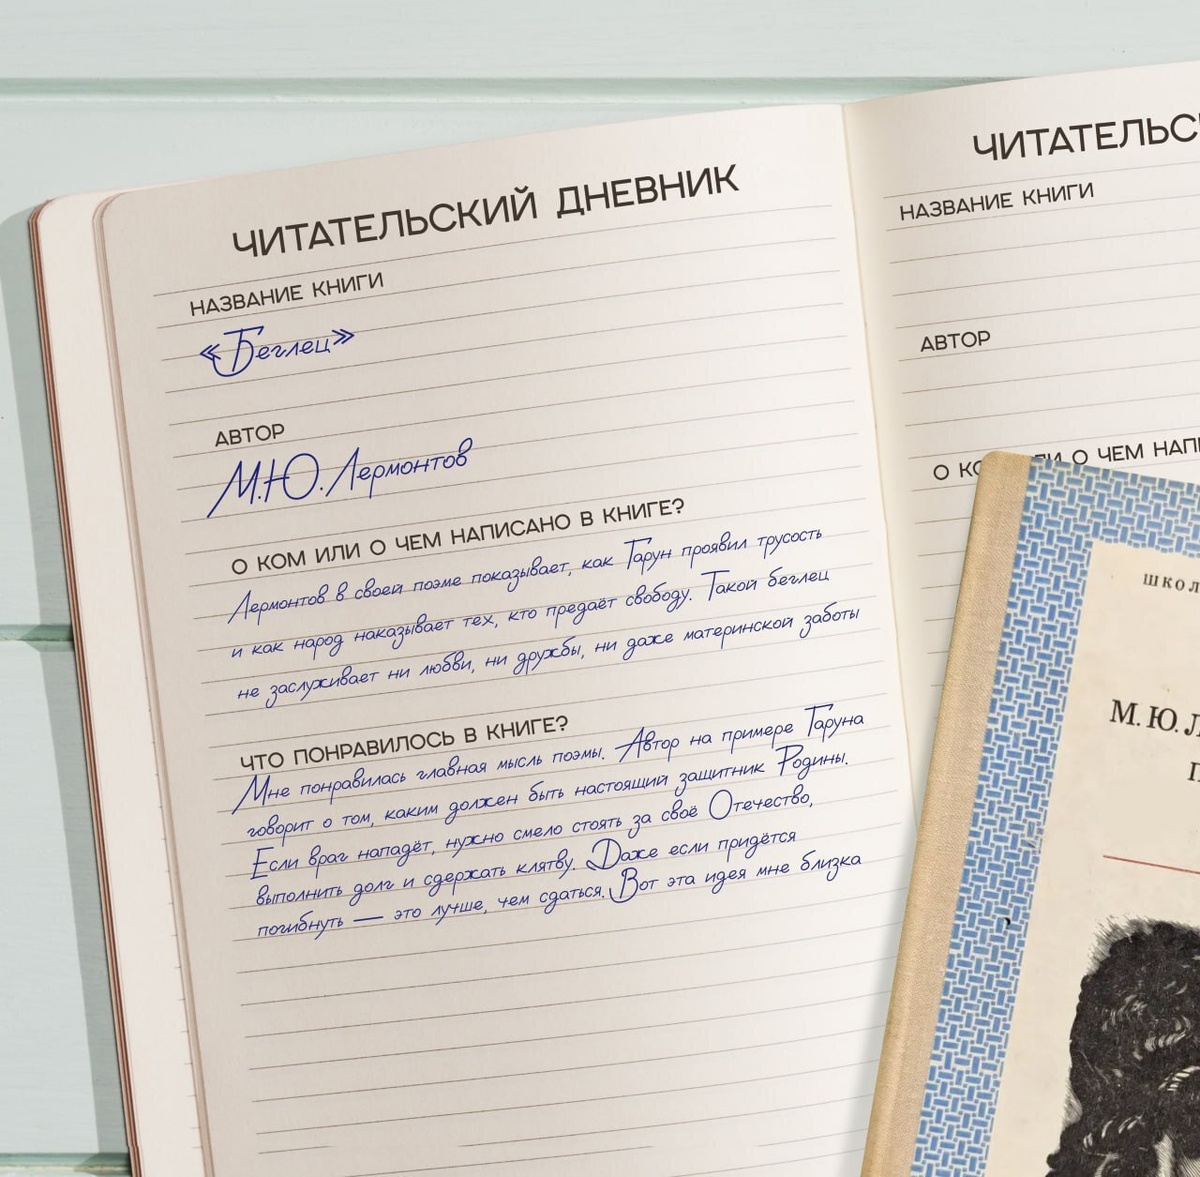 ЧИТАТЕЛЬСКИЙ ДНЕВНИК
НАЗВАНИЕ КНИГИ
«Беглец»
АВТОР
М.Ю. Лермонтов
О КОМ ИЛИ О ЧЕМ НАПИСАНО В КНИГЕ?
Лермонтов в своей поэме показывает, как Гарун проявил трусость
и как народ наказывает тех, кто предаёт свободу. Такой беглец
не заслуживает ни любви, ни дружбы, ни даже материнской заботы
ЧТО ПОНРАВИЛОСЬ В КНИГЕ?
Мне понравилась главная мысль поэмы. Автор на примере Гаруна
говорит о том, каким должен быть настоящий защитник Родины.
Если враг нападёт, нужно смело стоять за своё Отечество,
выполнить долг и сдержать клятву. Даже если придётся
погибнуть — это лучше, чем сдаться. Вот эта идея мне близка
ЧИТАТЕЛЬС
НАЗВАНИЕ КНИГИ
АВТОР
О КО ЛИ О ЧЕМ НАП
ШКОЛ
М. Ю. Л
П